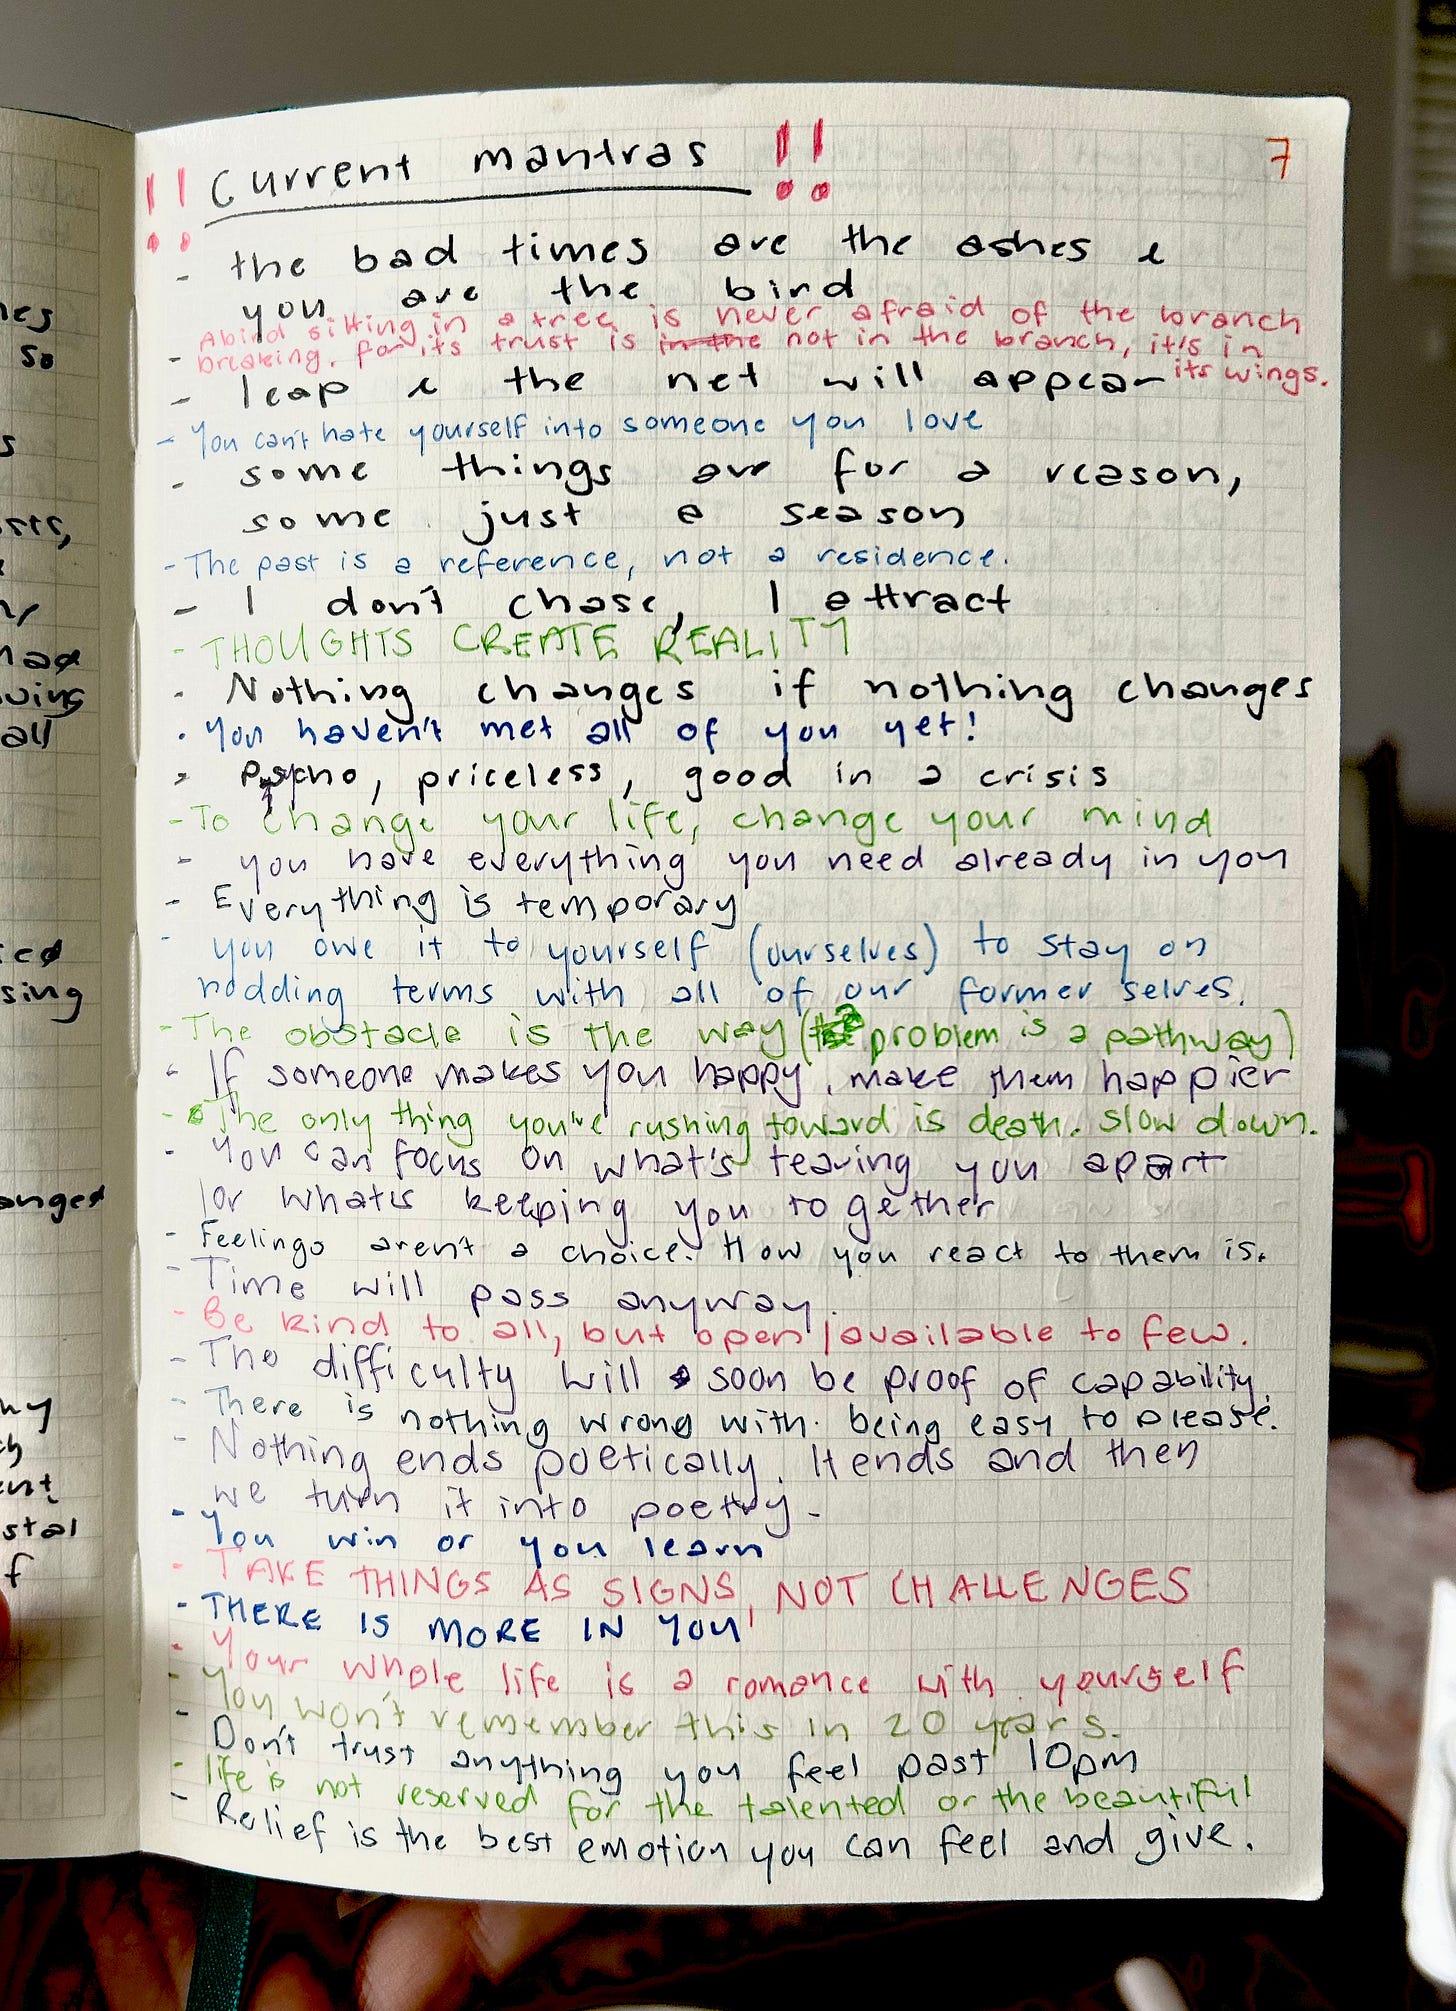 !! Current mantras !!
7
- the bad times are the ashes &
you are the bird
- A bird sitting in a tree is never afraid of the branch
breaking, for its trust is in the not in the branch, it's in
its wings.
- leap & the net will appear
- You can't hate yourself into someone you love
- some things are for a reason,
some just a season
- The past is a reference, not a residence.
- I don't chase, I attract
- THOUGHTS CREATE REALITY
- Nothing changes if nothing changes
- You haven't met all of you yet!
- Psycho, priceless, good in a crisis
- To change your life, change your mind
- you have everything you need already in you
- Everything is temporary
- you owe it to yourself (ourselves) to stay on
nodding terms with all of our former selves.
- The obstacle is the way (problem is a pathway)
- If someone makes you happy, make them happier
- The only thing you're rushing toward is death. Slow down.
- You can focus on what's tearing you apart
or what's keeping you together
- Feelings aren't a choice. How you react to them is.
- Time will pass anyway.
- Be kind to all, but open/available to few.
- The difficulty will soon be proof of capability.
- There is nothing wrong with being easy to please.
- Nothing ends poetically. It ends and then
we turn it into poetry.
- You win or you learn
- TAKE THINGS AS SIGNS, NOT CHALLENGES
- THERE IS MORE IN YOU
- Your whole life is a romance with yourself
- You won't remember this in 20 years.
- Don't trust anything you feel past 10pm
- life is not reserved for the talented or the beautiful
- Relief is the best emotion you can feel and give.